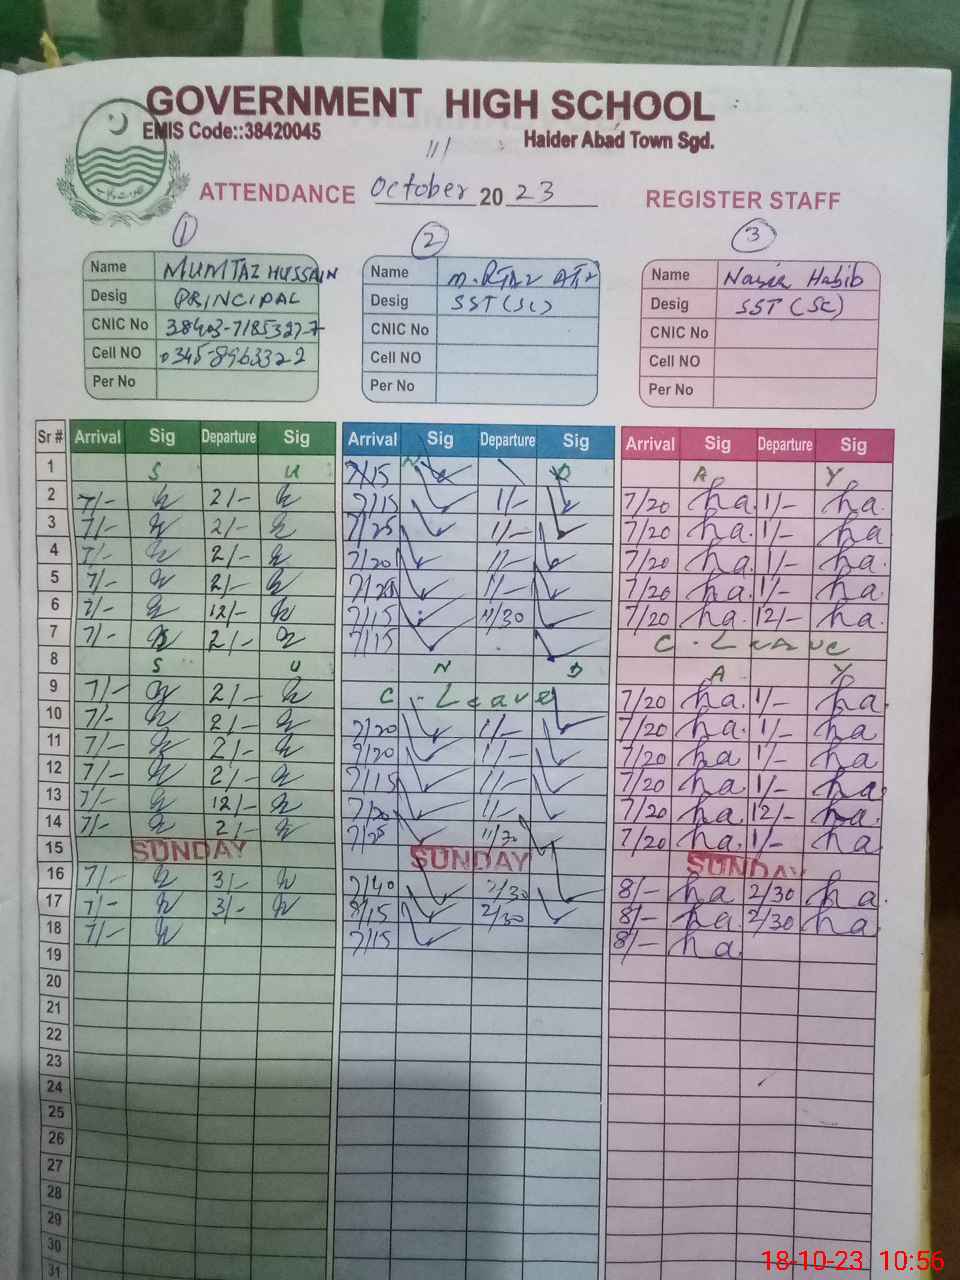 GOVERNMENT HIGH SCHOOL
EMIS Code::38420045
Haider Abad Town Sgd.
ATTENDANCE October 2023 REGISTER STAFF
1 2 3
Name MUMTAZ HUSSAIN Name M. Name Habib
Desig PRINCIPAL Desig SST (SC) Desig SST (SC)
CNIC No CNIC No CNIC No
Cell NO 0345-8963322 Cell NO Cell NO
Per No Per No Per No
Sr # Arrival Sig Departure Sig Arrival Sig Departure Sig Arrival Sig Departure Sig
1 S U 7/15 N D A Y
2 7/- 2/- 7/15 1/- 7/20 ha. 1/- ha.
3 7/- 2/- 7/25 1/- 7/20 ha. 1/- ha
4 7/- 2/- 7/20 1/- 7/20 ha. 1/- ha.
5 7/- 2/- 1/- 7/20 ha. 1/- ha.
6 7/- 12/- 7/15 11/30 7/20 ha. 12/- ha.
7 7/- 2/- 7/15 C. Leave
8 S U N D A Y
9 7/- 2/- C. Leave 7/20 ha. 1/- ha
10 7/- 2/- 7/20 1/- 7/20 ha. 1/- ha
11 7/- 2/- 7/20 1/- 7/20 ha 1/- ha
12 7/- 2/- 7/15 1/- 7/20 ha. 1/- ha
13 7/- 12/- 7/20 1/- 7/20 ha. 12/- ha.
14 7/- 2/- 7/25 11/30 7/20 ha. 1/- ha
15 SUNDAY SUNDAY SUNDAY
16 7/- 3/- 7/40 2/30 8/- ha 2/30 ha.
17 7/- 3/- 8/15 2/30 8/- ha. 2/30 ha
18 7/- 7/15 8/- ha.
19
20
21
22
23
24
25
26
27
28
29
30
31
18-10-23 10:56